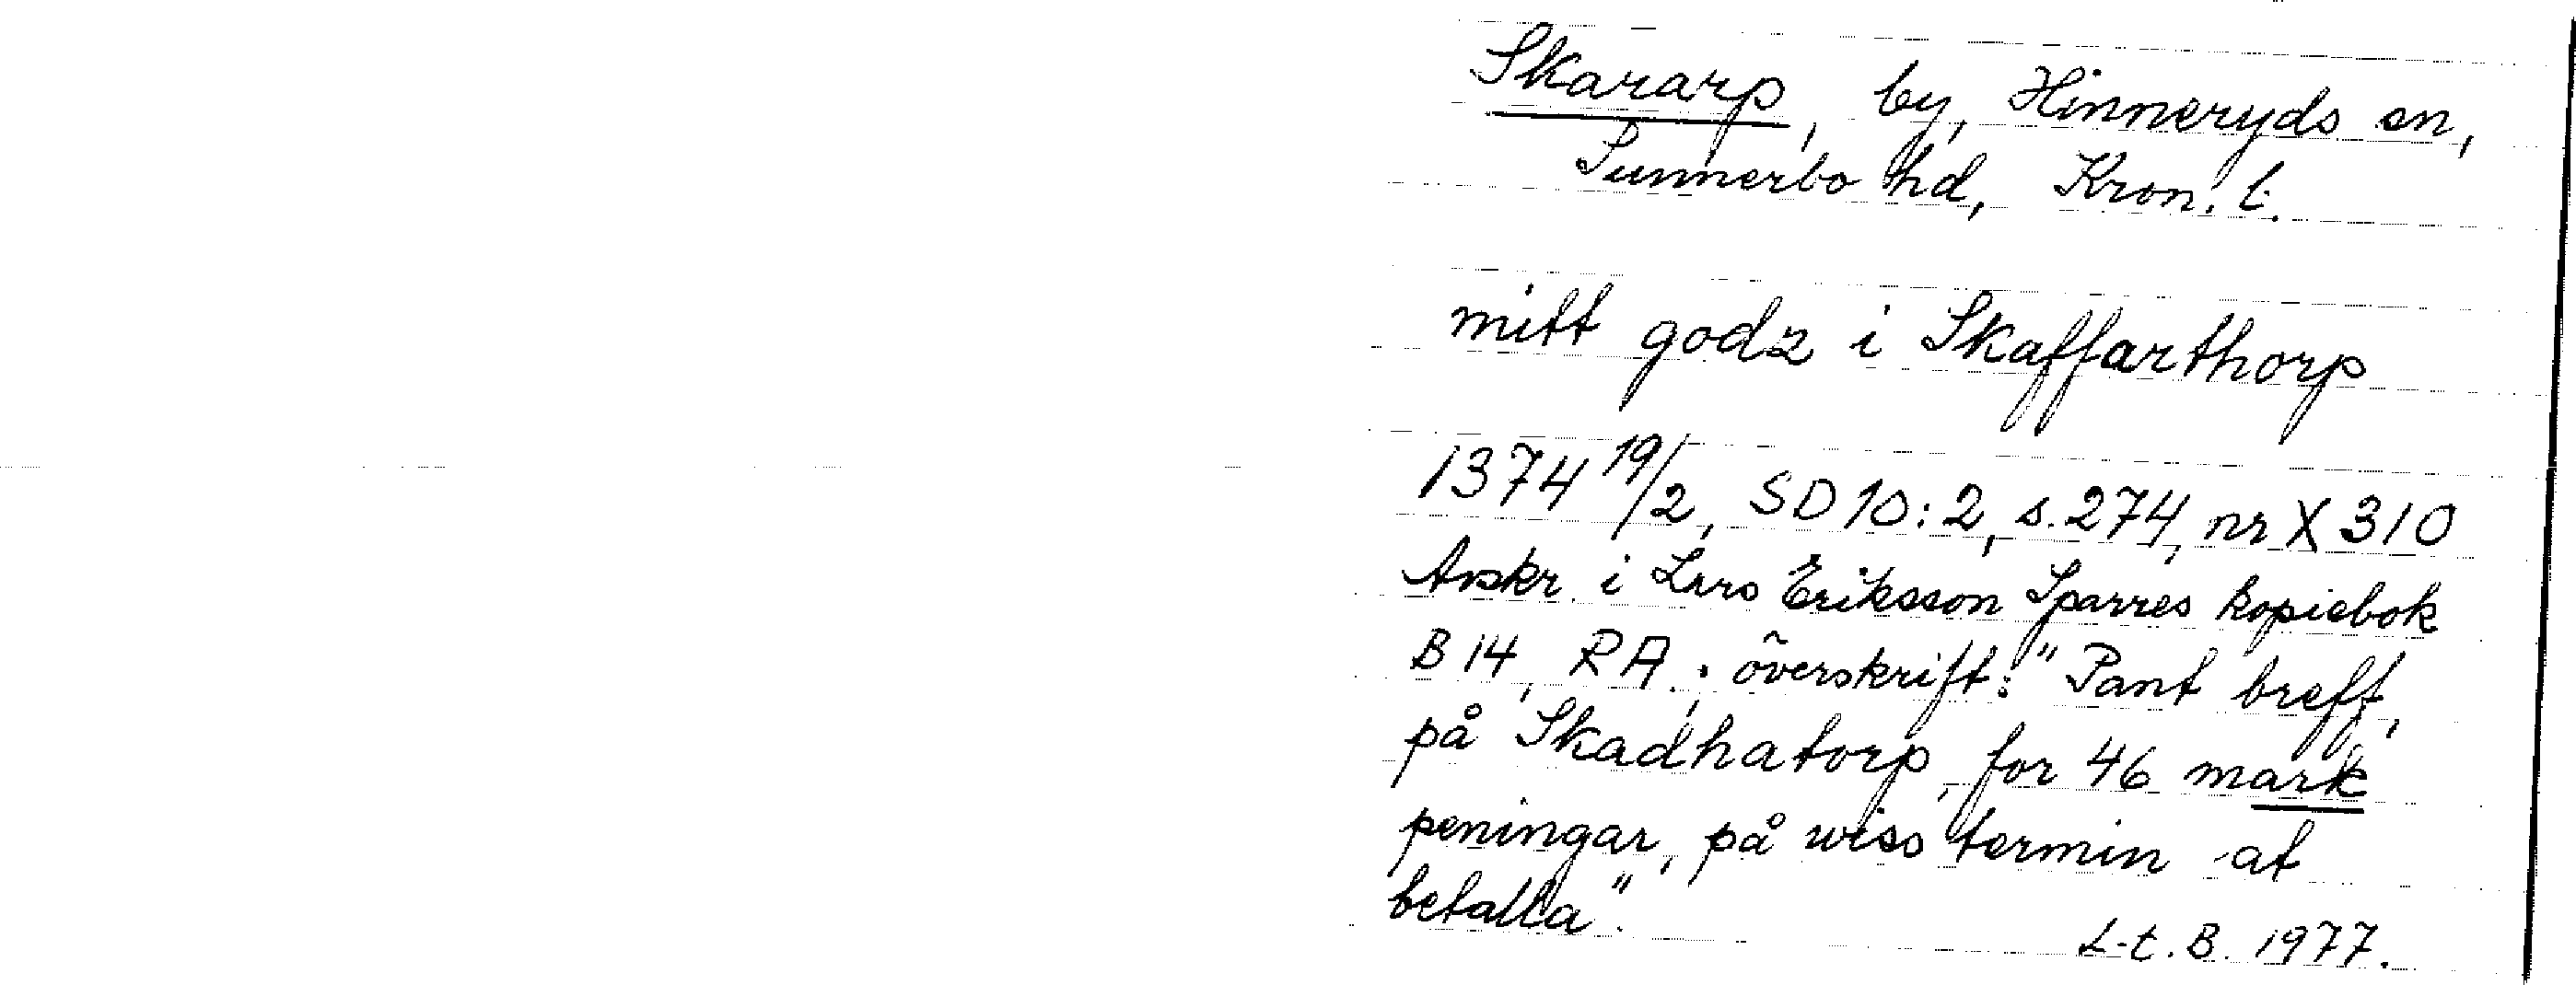 Skararp, by, Hinneryds sn,
Sunnerbo hd, Kron. l.
mitt godz i Skaffarthorp
1374 19/2, SD 10:2, s. 274, nr X 310
Avskr. i Lars Eriksson Sparres kopiebok
B 14, RA; överskrift: "Pant breff,
på Skadhatorp, for 46 mark
peningar, på wiss termin at
betalla".
L-t. B. 1977.